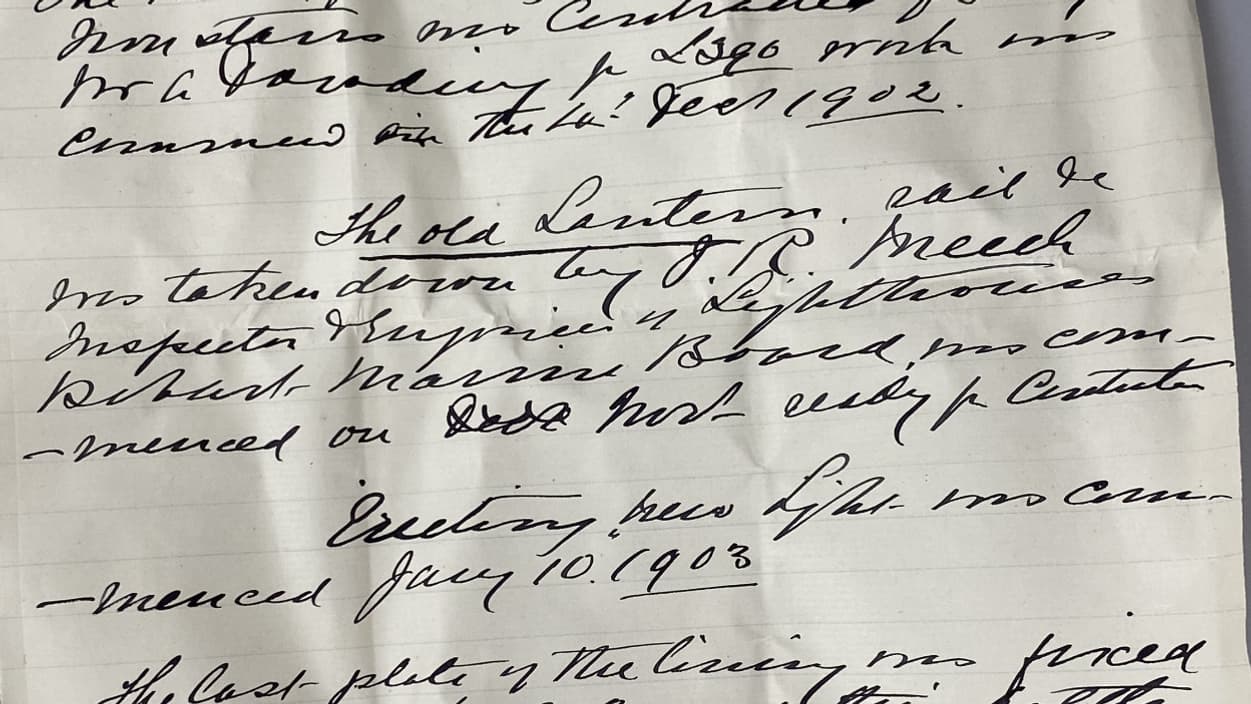 Iron stairs was Contracted for by
Mr G Paradine for £390 work was
commenced in the 1st Decr 1902.
The old Lantern. rail &c
was taken down by J. R. Meech
Inspector & Engineer of Lighthouses
Hobart Marine Board, was com-
-menced on work ready for
Erecting new Light was com-
-menced Jany 10. 1903
The last plate of the lining was fixed